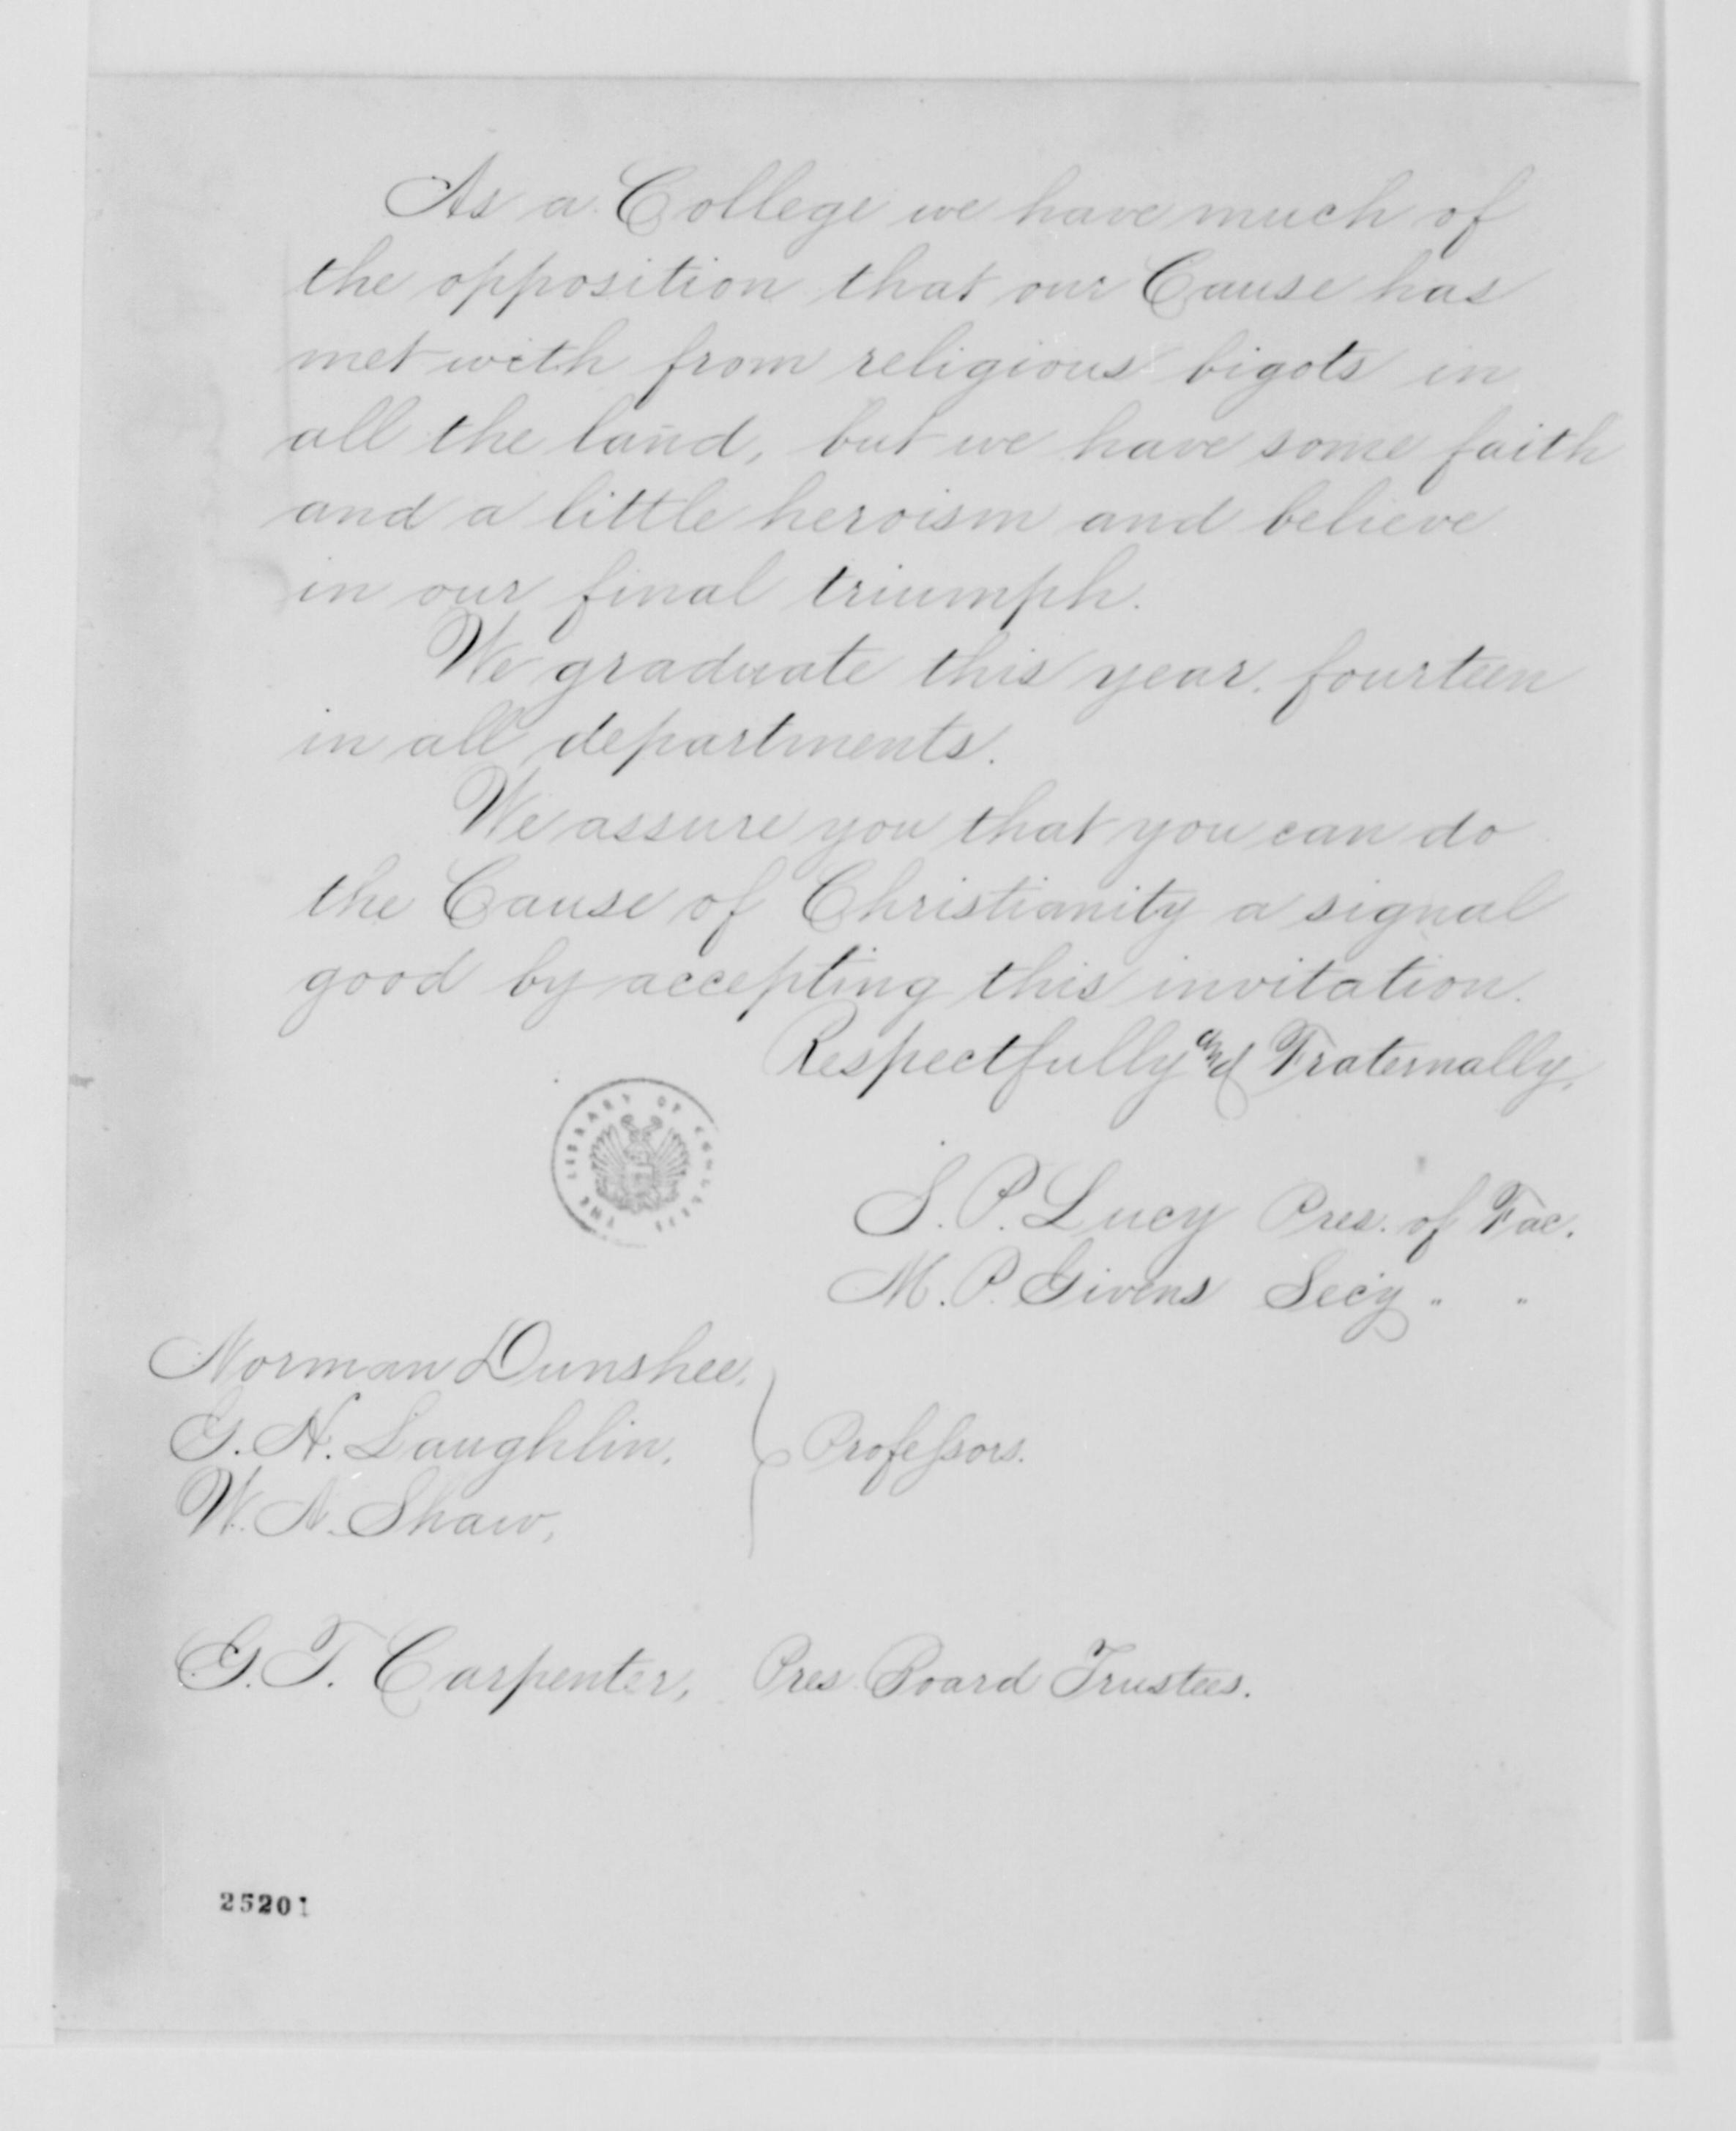 As a College we have much of
the opposition that our Cause has
met with from religious bigots in
all the land, but we have some faith
and a little heroism and believe
in our final triumph.
We graduate this year. fourteen
in all departments.
We assure you that you can do
the Cause of Christianity a signal
good by accepting this invitation.
Respectfully and Fraternally,
THE LIBRARY OF CONGRESS
S. P. Lucy Pres. of Fac.
M. P. Givens Sec'y " "
Norman Dunshee,
G. H. Laughlin, Professors.
W. N. Shaw,
G. T. Carpenter, Pres Board Trustees.
25201